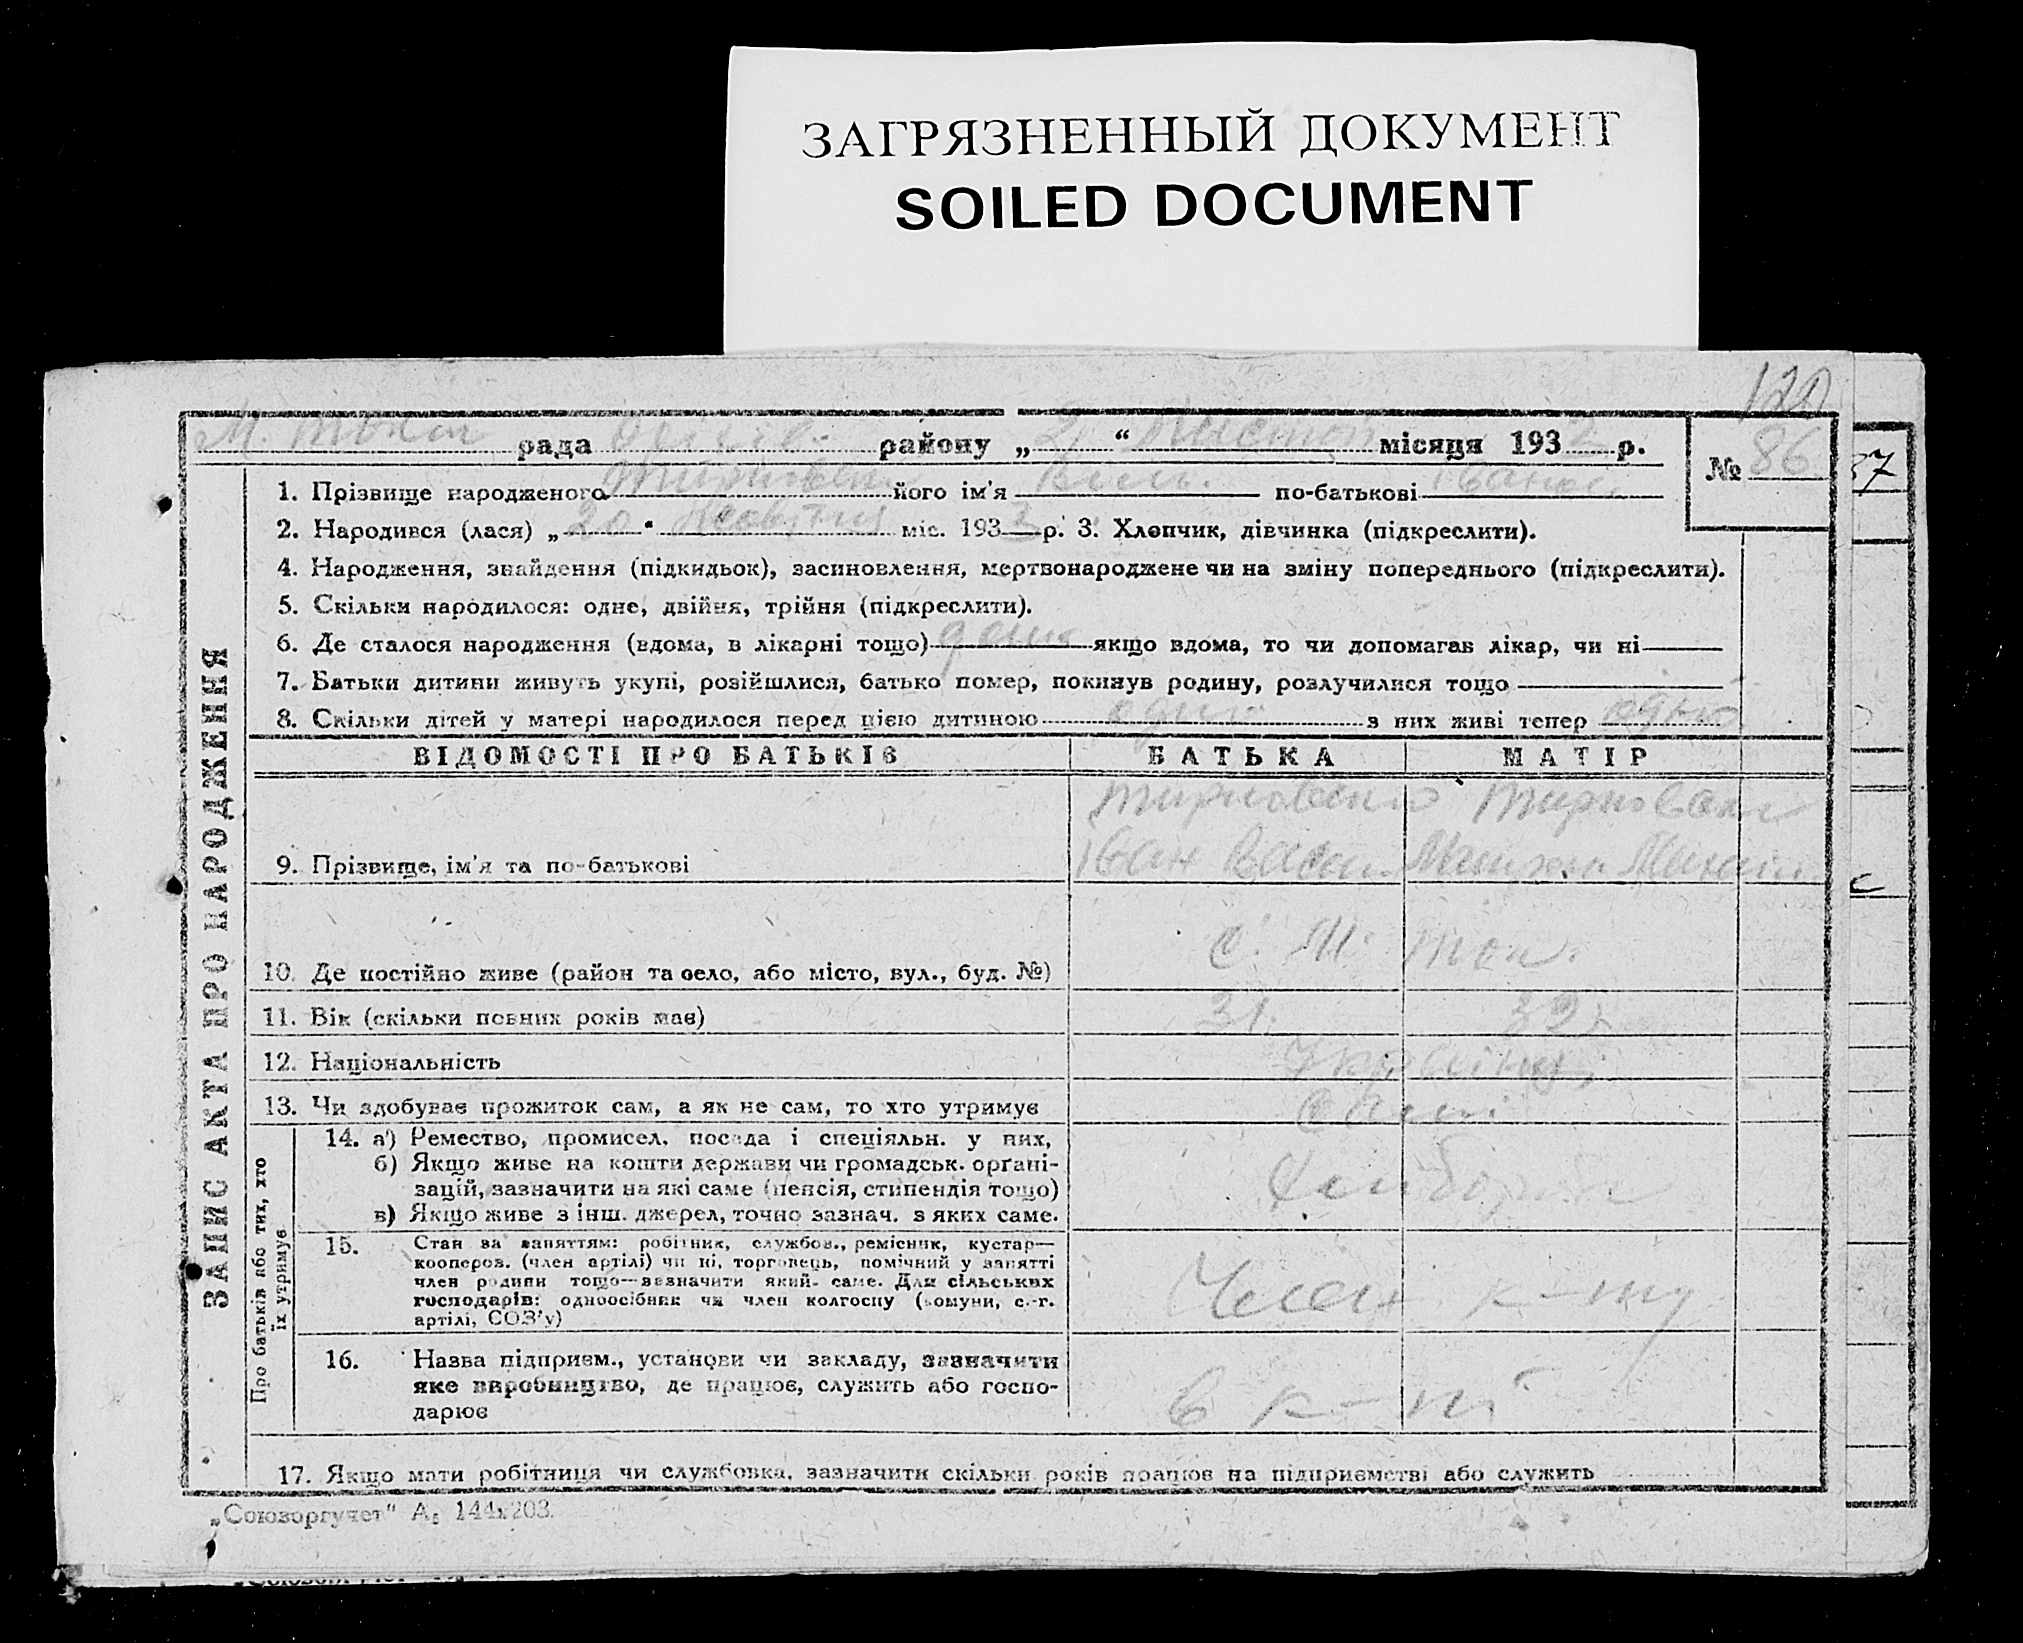 ЗАГРЯЗНЕННЫЙ ДОКУМЕНТ
SOILED DOCUMENT
120
рада району „ 2 “ місяця 1932 р.
№ 86
37
1. Прізвище народженого його ім'я по-батькові
2. Народився (лася) „ 20 " Жовтня міс. 1932 р. 3. Хлопчик, дівчинка (підкреслити).
4. Народження, знайдення (підкидьок), засиновлення, мертвонароджене чи на зміну попереднього (підкреслити).
5. Скільки народилося: одне, двійня, трійня (підкреслити).
6. Де сталося народження (вдома, в лікарні тощо) дома якщо вдома, то чи допомагав лікар, чи ні
7. Батьки дитини живуть укупі, розійшлися, батько помер, покинув родину, розлучилися тощо
8. Скільки дітей у матері народилося перед цією дитиною один з них живі тепер один
ЗАПИС АКТА ПРО НАРОДЖЕННЯ
ВІДОМОСТІ ПРО БАТЬКІВ БАТЬКА МАТІР
9. Прізвище, ім'я та по-батькові Іван
10. Де постійно живе (район та село, або місто, вул., буд. №) с. М. Ток.
11. Вік (скільки повних років має) 31. 32
12. Національність
13. Чи здобуває прожиток сам, а як не сам, то хто утримує сами
Про батьків або тих, хто
їх утримує
14. а) Ремество, промисел, посада і спеціяльн. у них,
б) Якщо живе на кошти держави чи громадськ. органі-
зацій, зазначити на які саме (пенсія, стипендія тощо)
в) Якщо живе з інш. джерел, точно зазнач. з яких саме.
15. Стан за заняттям: робітник, службов., ремісник, кустар—
кооперов. (член артілі) чи ні, торговець, помічний у занятті
член родини тощо—зазначити який саме. Для сільських
господарів: одноосібник чи член колгоспу (комуни, с.-г.
артілі, СОЗ'у)
Член к-пу
16. Назва підприєм., установи чи закладу, зазначити
яке виробництво, де працює, служить або госпо-
дарює
в к-пі
17. Якщо мати робітниця чи службовка, зазначити скільки років працює на підприємстві або служить
„Союзоргучет" А₅ 144х203.